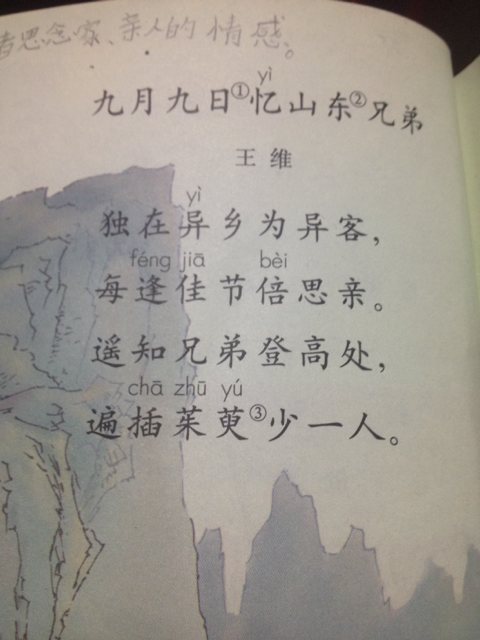 者思念家、亲人的情感。
yì
九月九日①忆山东②兄弟
王维
yì
独在异乡为异客，
féng jiā bèi
每逢佳节倍思亲。
遥知兄弟登高处，
chā zhū yú
遍插茱萸③少一人。